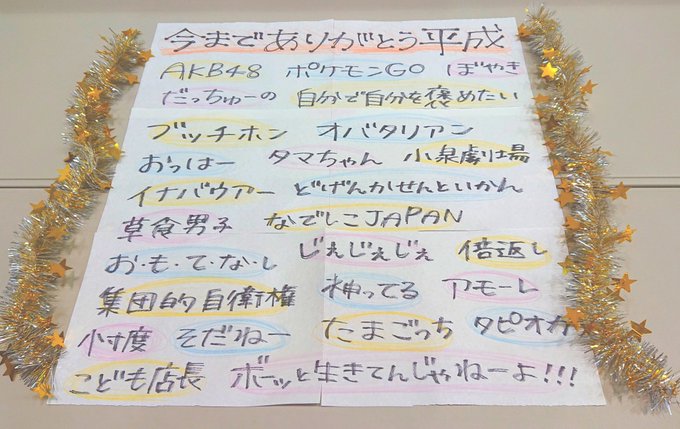 今までありがとう平成
AKB48 ポケモンGO ぼやき
だっちゅーの 自分で自分を褒めたい
ブッチホン オバタリアン
おっはー タマちゃん 小泉劇場
イナバウアー どげんかせんといかん
草食男子 なでしこJAPAN
お・も・て・な・し じぇじぇじぇ 倍返し
集団的自衛権 神ってる アモーレ
忖度 そだねー たまごっち タピオカ
こども店長 ボーッと生きてんじゃねーよ!!!